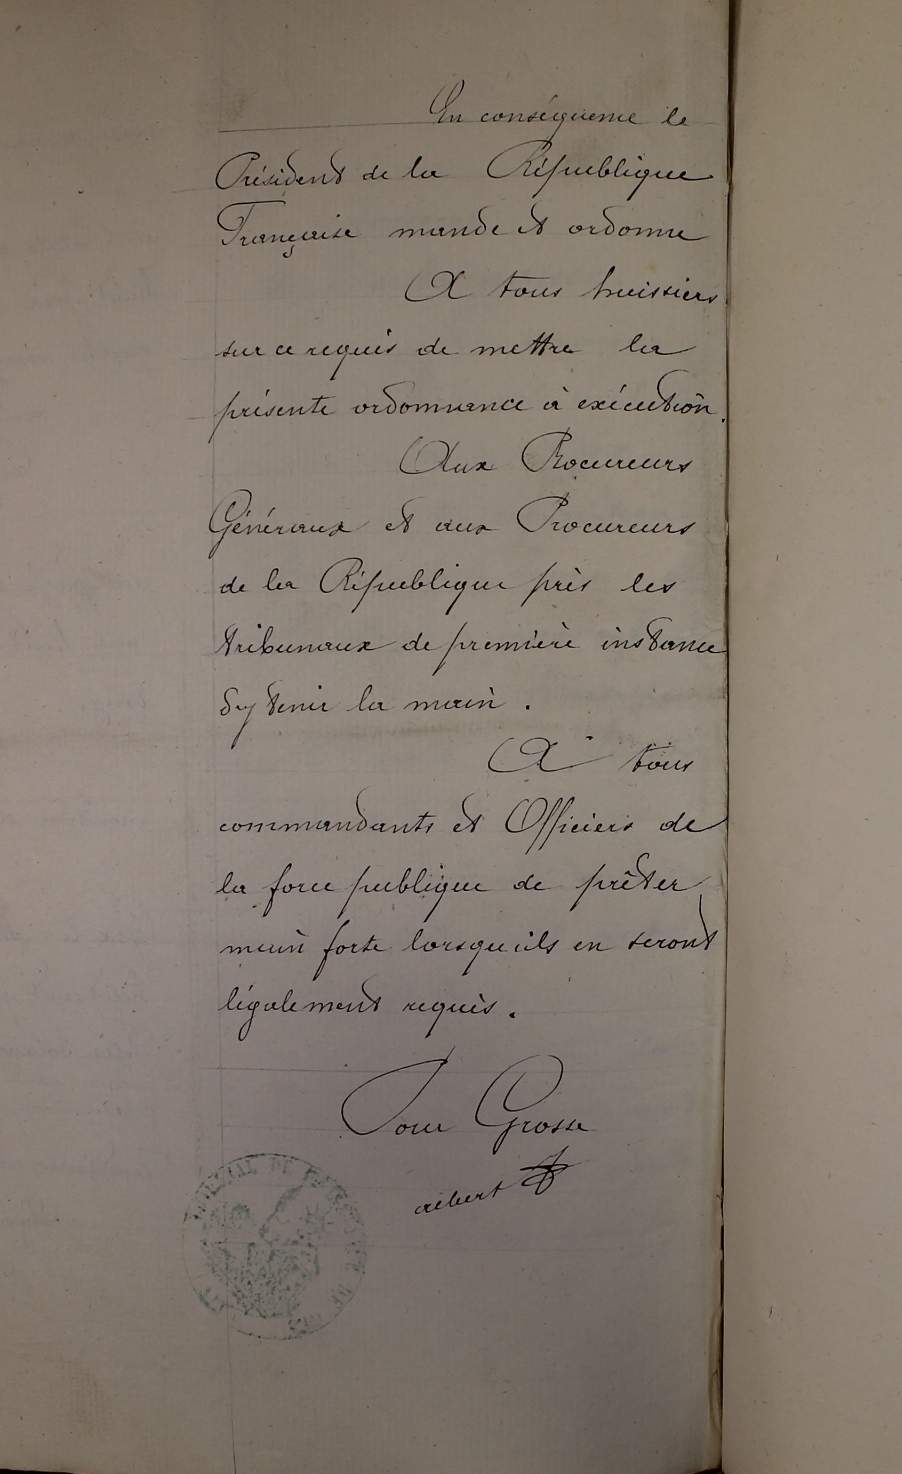 En conséquence le
Président de la République
Française mande et ordonne
A tous huissiers
sur ce requis de mettre la
présente ordonnance à exécution.
Aux Procureurs
Généraux et aux Procureurs
de la République près les
tribunaux de première instance
d'y tenir la main.
A tous
commandants et Officiers de
la force publique de prêter
main forte lorsqu'ils en seront
légalement requis.
Pour Grosse
TRIBUNAL DE